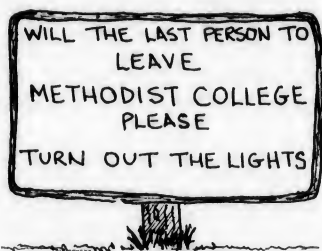 WILL THE LAST PERSON TO
LEAVE
METHODIST COLLEGE
PLEASE
TURN OUT THE LIGHTS